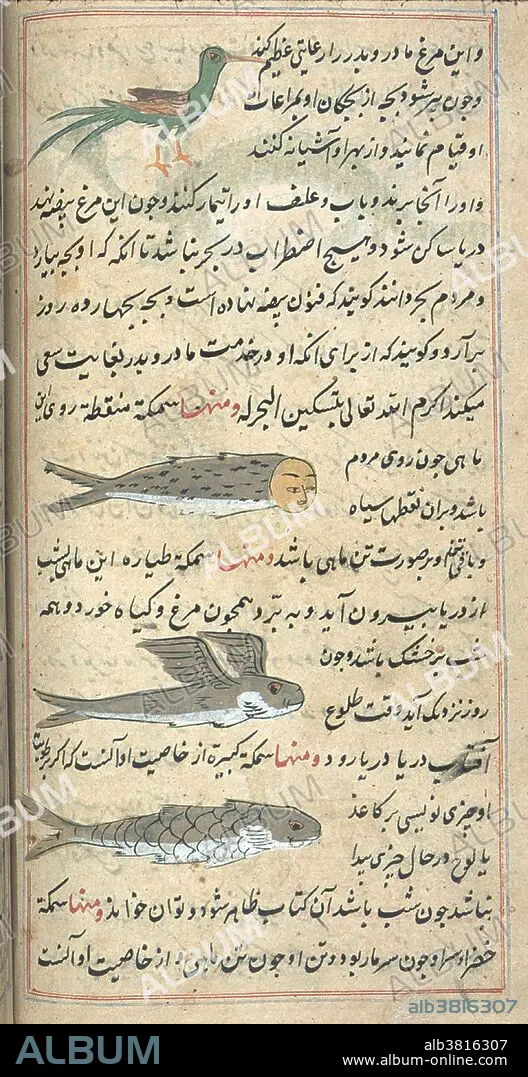 و این مرغ مادر و پدر را رعایتی عظیم کند
و چون پیر شود بچه از بچکان او بمراعات
او قیام نمایند و از بهر او آشیانه کنند
و او را آنجا برند و باب و علف او را تیمار کنند و چون این مرغ بیضه نهد
دریا ساکن شود و هیچ اضطراب در بحر نباشد تا آنکه که او بچه بیارد
و مردم بحر دانند کویند که قنون بیضه نهاده است و بچه بچهارده روز
برآرد و کویند که از برای آنکه او در خدمت مادر و پدر بغایت سعی
میکند اکرم الله تعالی بتسکین البحر له ومنها سمکة منقطة روی این
ماهی چون روی مردم
باشد و بران نقطها سیاه
و باقی او بر صورت تن ماهی باشد ومنها سمکة طیاره این ماهی بشب
از دریا بیرون آید و به پرد همچون مرغ و کیاه خورد و همه
شب بر خشک باشد و چون
روز نزدیک آید وقت طلوع
آفتاب در دریا رود ومنها سمکة کبیرة از خاصیت او آنست که اکر
او چیزی نویسی بر کاغذ
یا لوح در حال چیزی پیدا
نباشد چون شب باشد آن کتاب ظاهر شود و توان خواند ومنها سمکة
خضرا سر او چون سر مار بود و تن او چون تن ماهی و از خاصیت او آنست
ALBUM
alb3816307
ALBUM
alb3816307
www.album-online.com